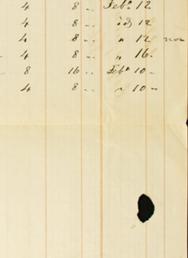 4 8 " Feb. 12
4 8 " " 12
4 8 " " 12
4 8 " " 16
8 16 " Feb. 10
4 8 " " 10